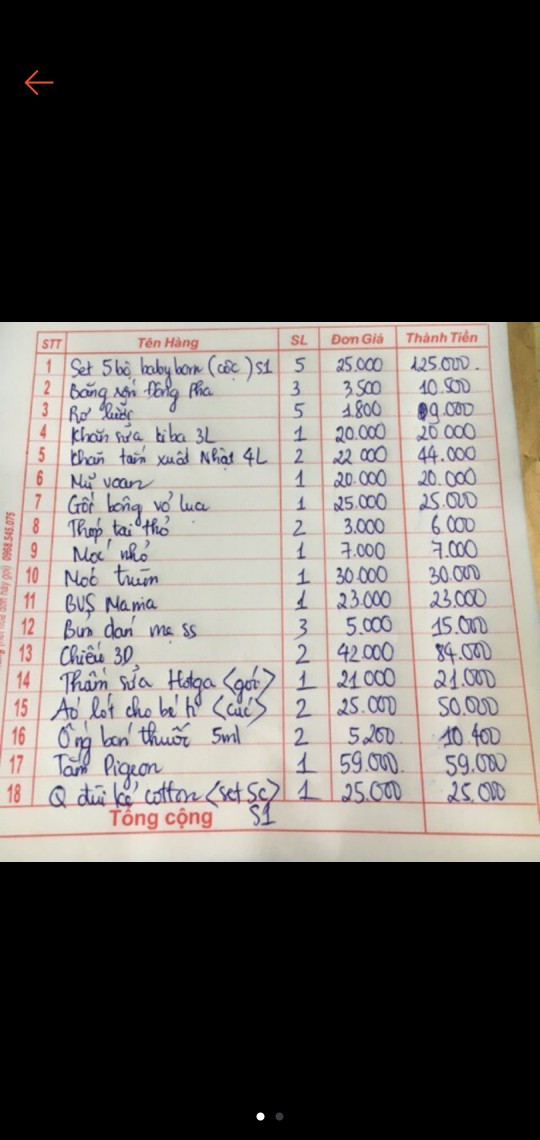 STT Tên Hàng SL Đơn Giá Thành Tiền
1 Set 5 bộ babyborn (cộc) S1 5 25.000 125.000.
2 Băng rốn Đông Pha 3 3.500 10.500
3 Rơ lưỡi 5 1.800 9.000
4 Khăn sữa kiba 3L 1 20.000 20 000
5 Khăn tắm xuất Nhật 4L 2 22 000 44.000
6 Mũ voan 1 20.000 20.000
7 Gối bông vỏ lụa 1 25.000 25.000
8 Thóp tai thỏ 2 3.000 6 000
9 Móc nhỏ 1 7.000 7.000
10 Móc 1 30.000 30.000
11 BVS Mama 1 23.000 23.000
12 Bỉm dán ss 3 5.000 15.000
13 Chiếu 3D 2 42.000 84.000
14 Thấm sữa <gói> 1 21 000 21.000
15 Áo lót cho bé ti <cúc> 2 25.000 50.000
16 Ống bơm thuốc 5ml 2 5.200 10.400
17 Tắm Pigeon 1 59.000. 59.000
18 Q đùi kẻ cotton <set 5c> 1 25.000 25.000
Tổng cộng S1
0968.545.075